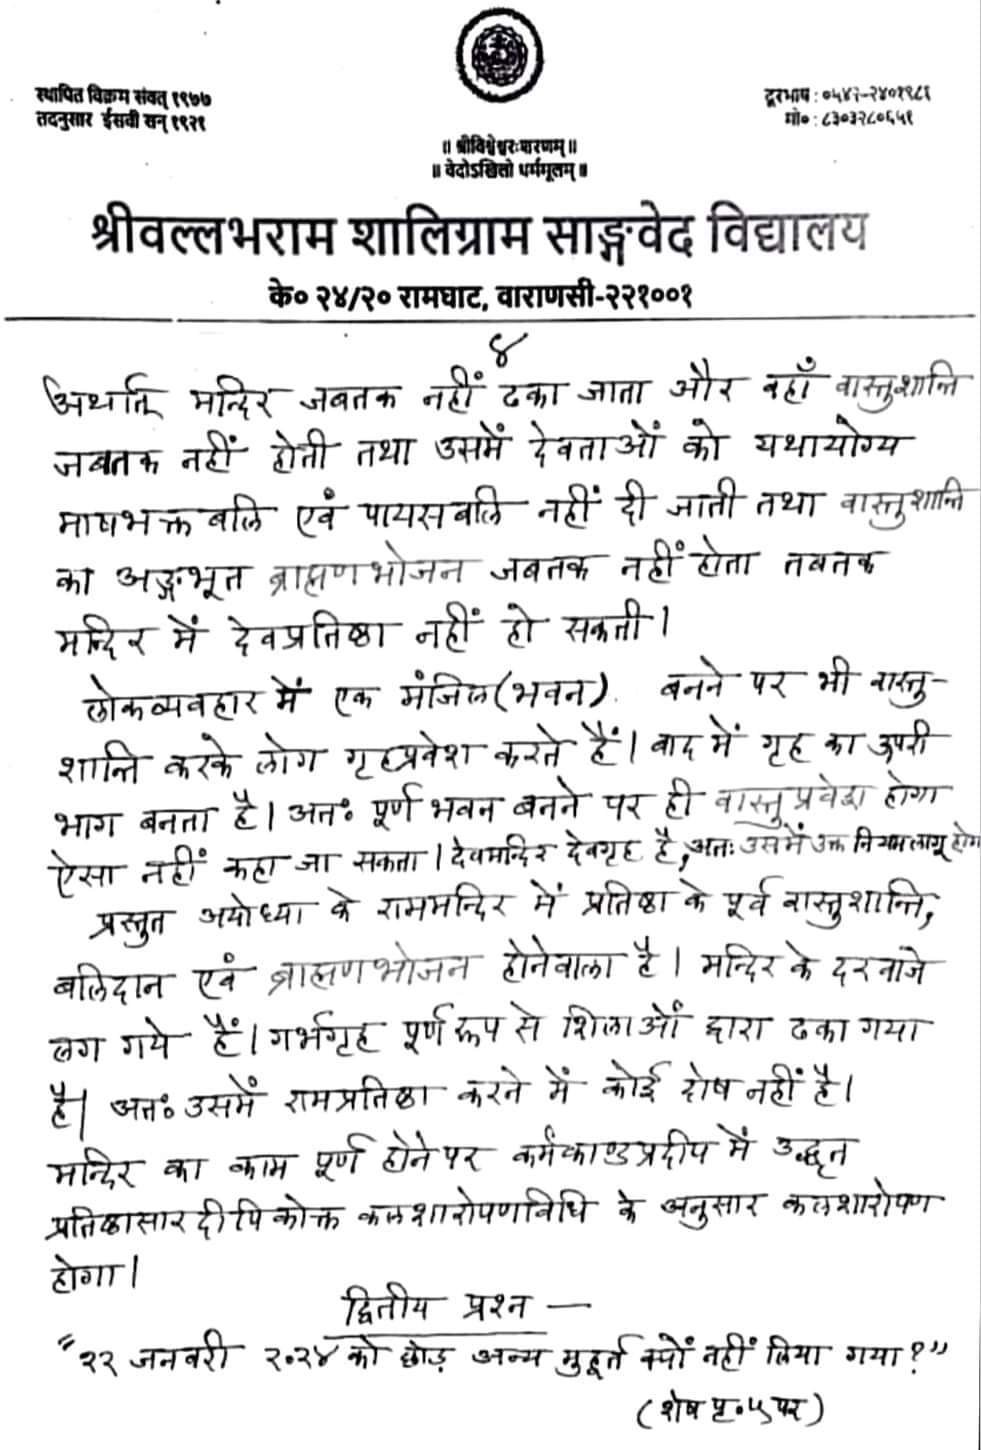 स्थापित विक्रम संवत् १९७७
तदनुसार ईसवी सन् १९२१
दूरभाष : ०५४२-२४०१९८१
मो० : ८३०३२८०६५१
॥ श्रीविश्वेश्वरःशरणम् ॥
॥ वेदोऽखिलो धर्ममूलम् ॥
श्रीवल्लभराम शालिग्राम साङ्गवेद विद्यालय
के० २४/२० रामघाट, वाराणसी-२२१००१
४
अर्थात् मन्दिर जबतक नहीं ढका जाता और वहाँ वास्तुशान्ति
जबतक नहीं होती तथा उसमें देवताओं को यथायोग्य
माषभक्त बलि एवं पायसबलि नहीं दी जाती तथा वास्तुशान्ति
का अङ्गभूत ब्राह्मणभोजन जबतक नहीं होता तबतक
मन्दिर में देवप्रतिष्ठा नहीं हो सकती।
लोकव्यवहार में एक मंजिल (भवन) बनने पर भी वास्तु-
शान्ति करके लोग गृहप्रवेश करते हैं। बाद में गृह का उपरी
भाग बनता है। अतः पूर्ण भवन बनने पर ही वास्तुप्रवेश होगा
ऐसा नहीं कहा जा सकता। देवमन्दिर देवगृह है, अतः उसमें उक्त नियम लागू होगा
प्रस्तुत अयोध्या के राममन्दिर में प्रतिष्ठा के पूर्व वास्तुशान्ति,
बलिदान एवं ब्राह्मणभोजन होनेवाला है। मन्दिर के दरवाजे
लग गये हैं। गर्भगृह पूर्ण रूप से शिलाओं द्वारा ढका गया
है। अतः उसमें रामप्रतिष्ठा करने में कोई दोष नहीं है।
मन्दिर का काम पूर्ण होने पर कर्मकाण्डप्रदीप में उद्धृत
प्रतिष्ठासारदीपिकोक्त कलशारोपणविधि के अनुसार कलशारोपण
होगा।
द्वितीय प्रश्न —
"२२ जनवरी २०२४ को छोड़ अन्य मुहूर्त क्यों नहीं लिया गया?"
(शेष पृ०५ पर)